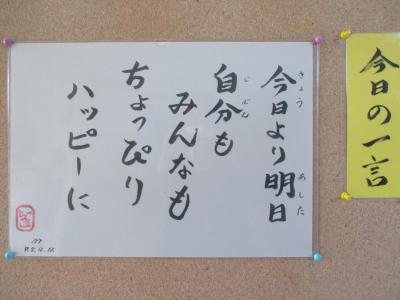 今日の一言
今日より明日
きょう
あした
自分も
じぶん
みんなも
ちょっぴり
ハッピーに